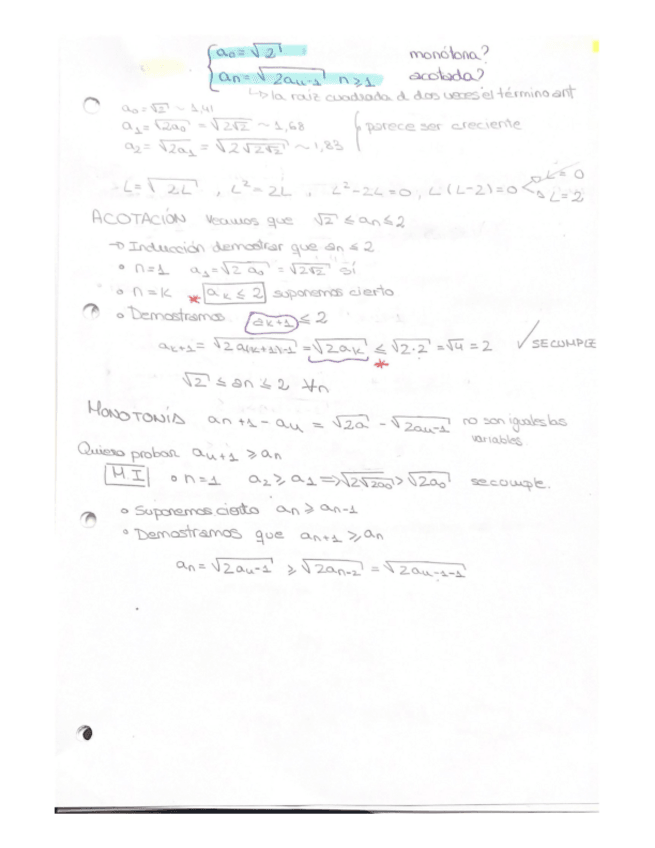 a₀ = √2 monótona?
aₙ = √2aₙ₋₁ n≥1 acotada?
↳ la raiz cuadrada d dos veces el término ant
a₀ = √2 ~ 1,41
a₁ = √2a₀ = √2√2 ~ 1,68 parece ser creciente
a₂ = √2a₁ = √2√2√2 ~ 1,83
L = √2L , L² = 2L , L²-2L=0 , L(L-2)=0 L=0
L=2
ACOTACIÓN veamos que √2 ≤ aₙ ≤ 2
→ Inducción demostrar que aₙ ≤ 2
• n=1 a₁ = √2a₀ = √2√2 sí
• n=k * aₖ ≤ 2 suponemos cierto
• Demostramos aₖ₊₁ ≤ 2
aₖ₊₁ = √2a₍ₖ₊₁₎₋₁ = √2aₖ ≤ √2·2 = √4 = 2 ✓ SE CUMPLE
*
√2 ≤ aₙ ≤ 2 ∀n
MONOTONÍA aₙ₊₁ - aₙ = √2a - √2aₙ₋₁ no son iguales las
variables.
Quiero probar aₙ₊₁ ≥ aₙ
M I • n=1 a₂ ≥ a₁ => √2√2a₀ > √2a₀ se cumple.
• Suponemos cierto aₙ ≥ aₙ₋₁
• Demostramos que aₙ₊₁ ≥ aₙ
aₙ = √2aₙ₋₁ ≥ √2aₙ₋₂ = √2aₙ₋₁₋₁